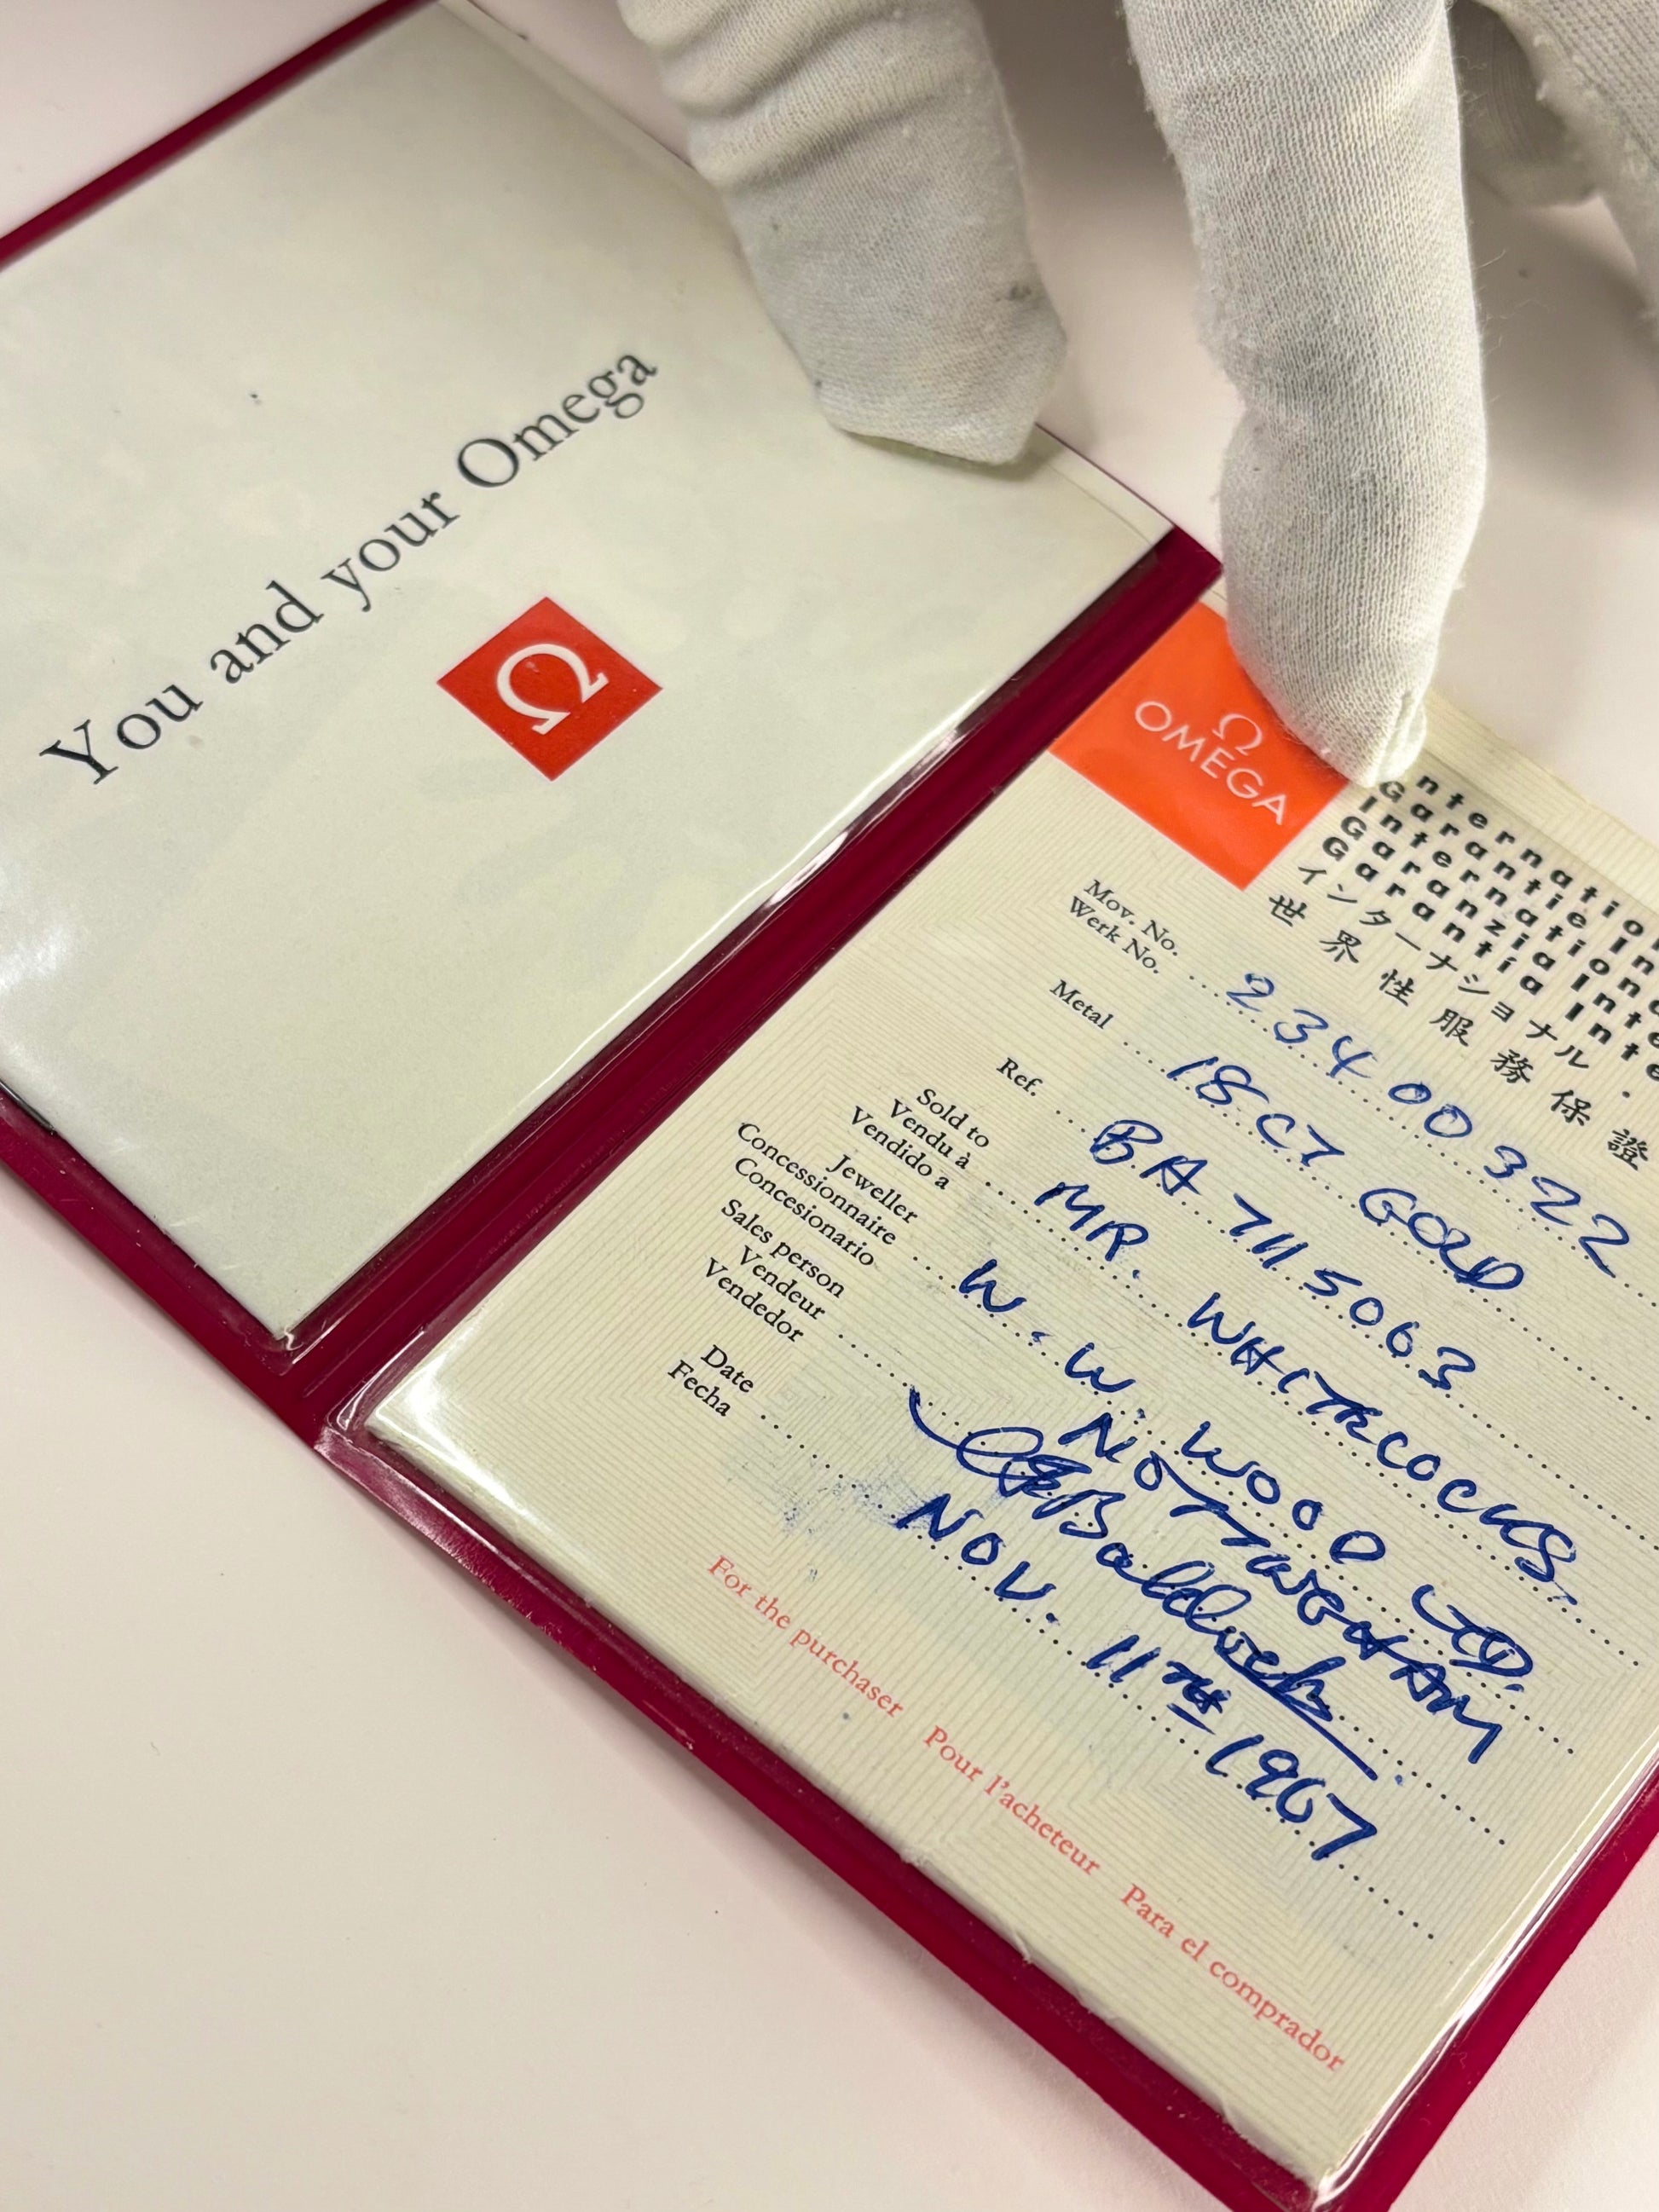 You and your Omega
Ω
Ω
OMEGA
nternatio
Garantie In
Internationa
Garanzia Inte
Garantia Inte
インターナショナル・
世界性服務保證
Mov. No.
Werk No. 23400322
Metal 18CT GOLD
Ref. BA 7115063
Sold to
Vendu à
Vendido a MR. WHITECOCKS.
Jeweller
Concessionnaire
Concesionario W. W. WOOD LTD.
NOTTINGHAM
Sales person
Vendeur
Vendedor
Date
Fecha NOV. 11TH 1967
For the purchaser Pour l'acheteur Para el comprador